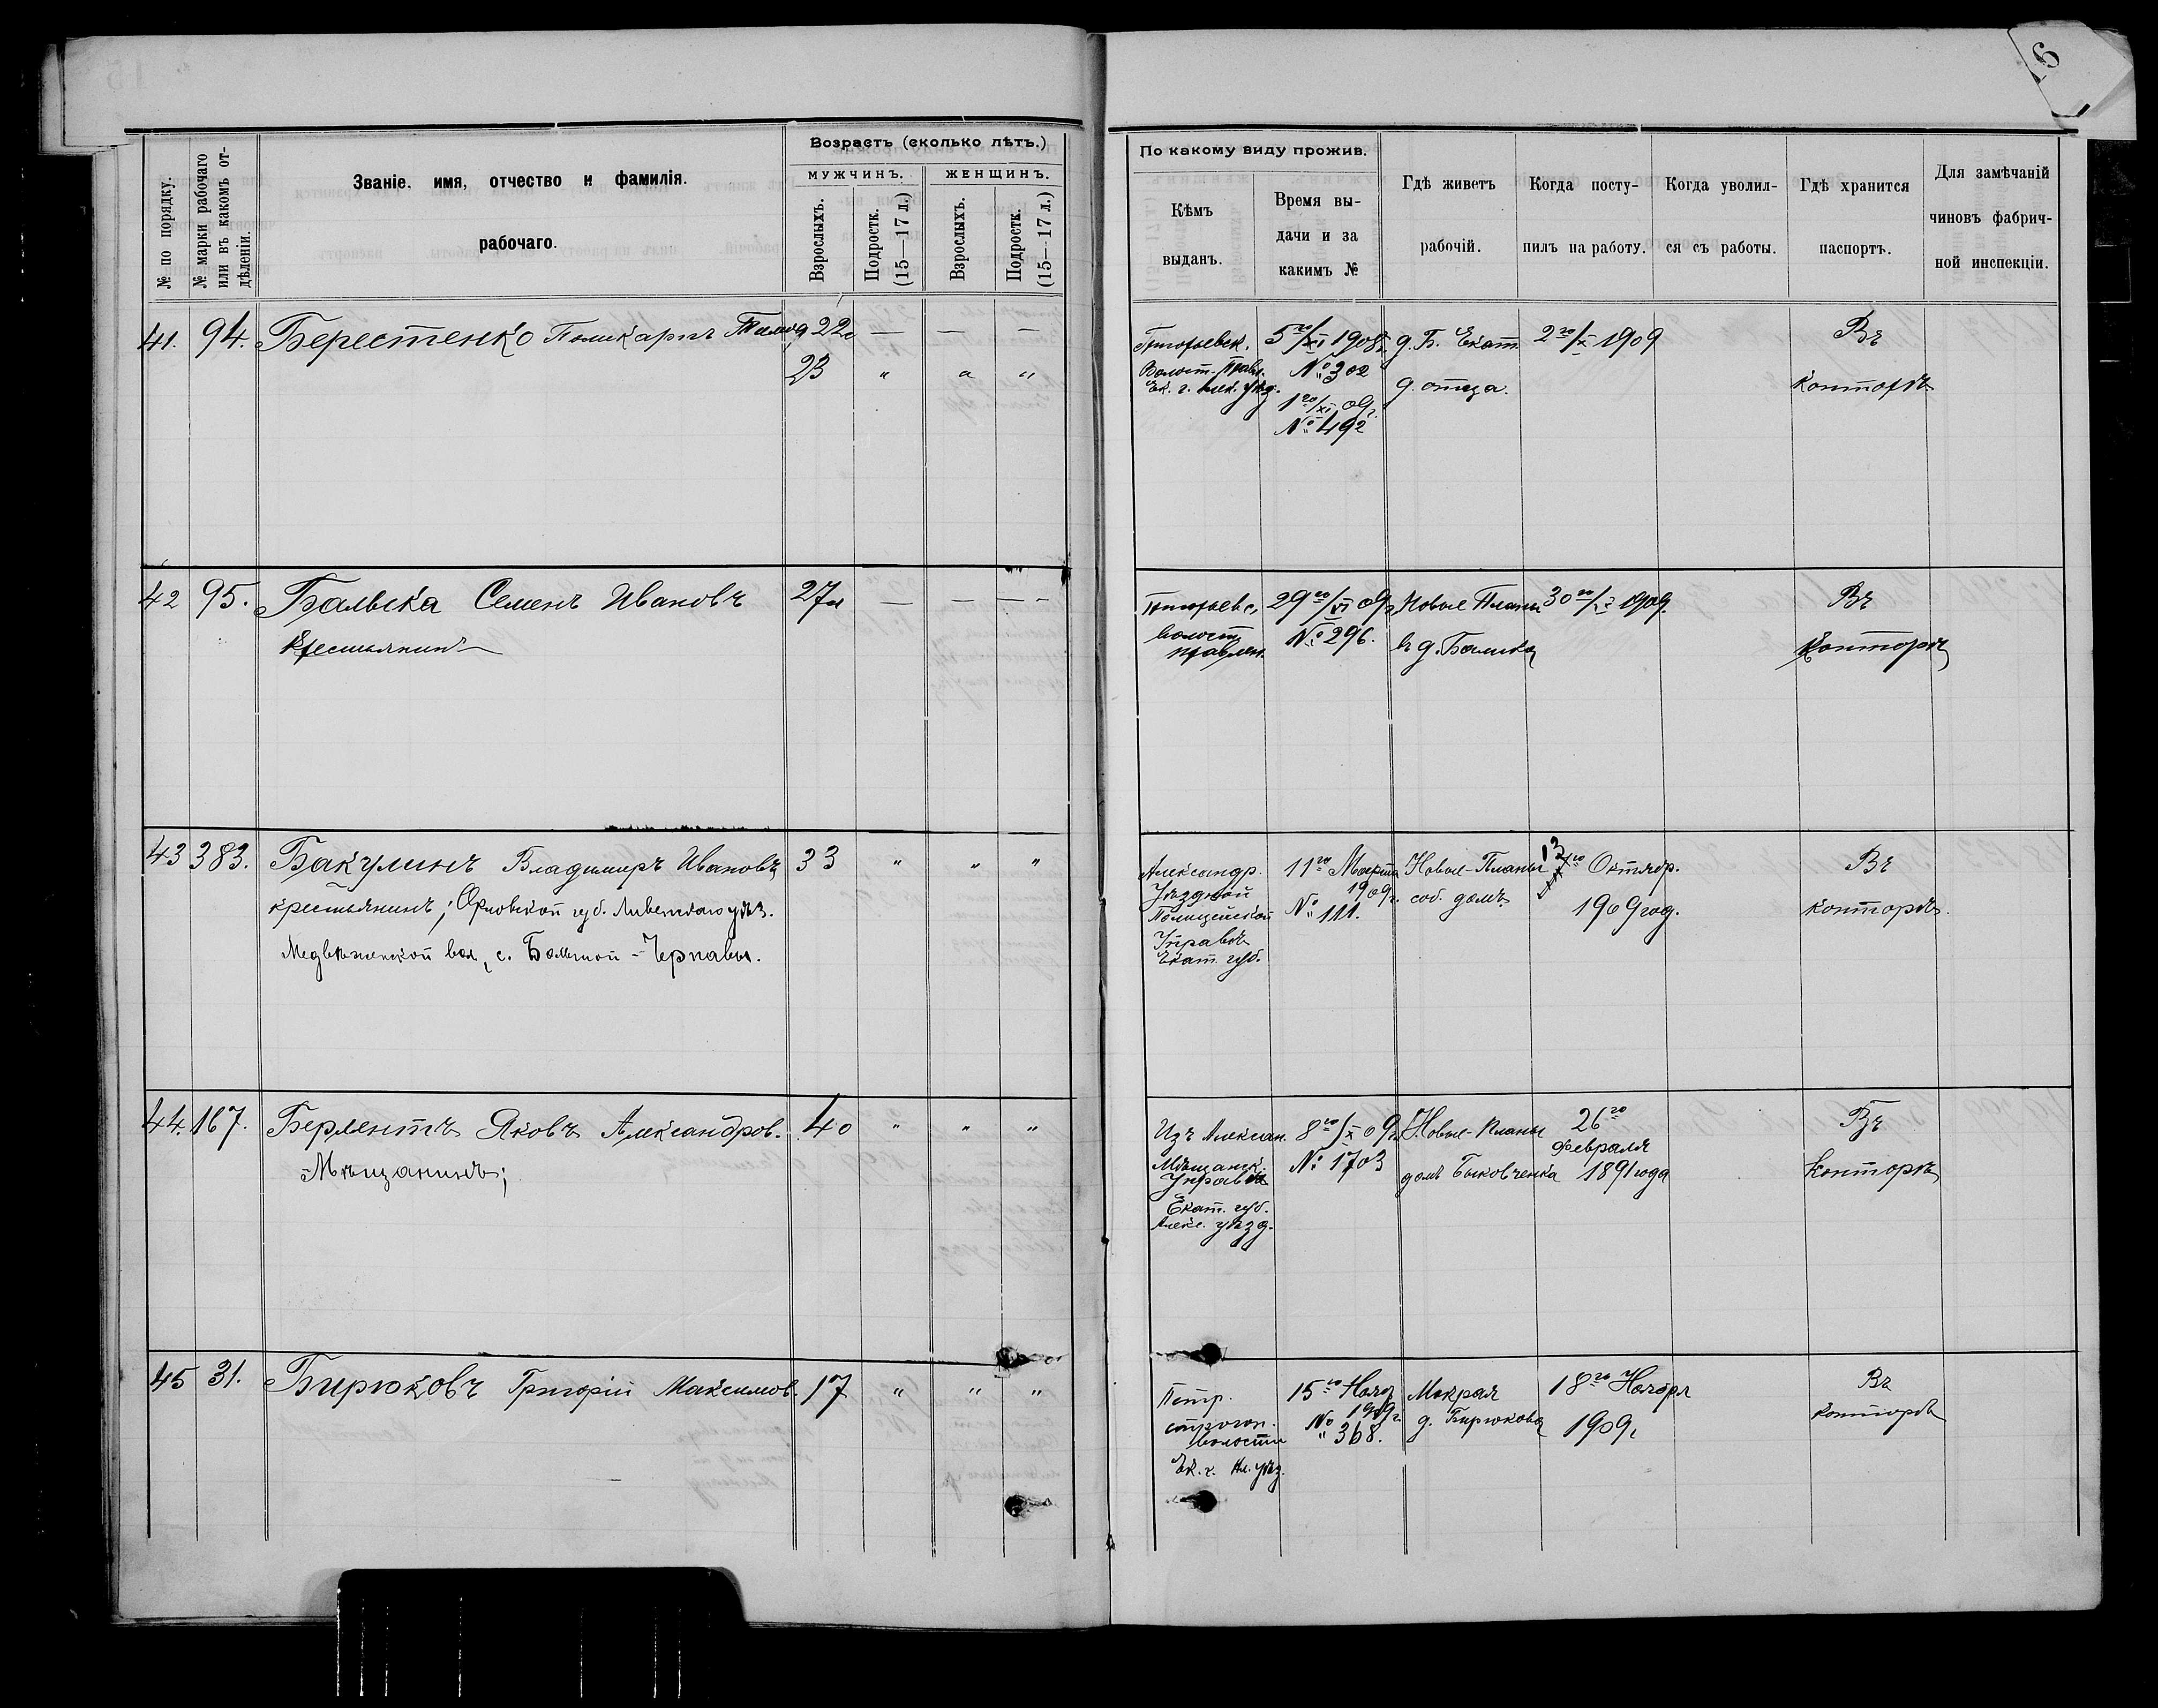 16
№ по порядку.
№ марки рабочаго или въ какомъ отдѣленіи.
Званіе. имя, отчество и фамилія.
рабочаго.
Возрастъ (сколько лѣтъ.)
мужчинъ.
женщинъ.
Взрослыхъ.
Подростк. (15—17 л.)
Взрослыхъ.
Подростк. (15—17 л.)
По какому виду прожив.
Кѣмъ
выданъ.
Время вы-
дачи и за
какимъ №
Гдѣ живетъ
рабочій.
Когда посту-
пилъ на работу.
Когда уволил-
ся съ работы.
Гдѣ хранится
паспортъ.
Для замѣчаній
чиновъ фабрич-
ной инспекціи.
41. 94. Берестенко Поликарпъ 22 — — —
23 " " "
Григорьевск. 5го/XI 1908г. д. Б. Екат. 2го/X 1909 Въ
Волост. Правл. № 302 д. отца. конторѣ
1го/XI 09г.
№ 492
42 95. Бальвска Семенъ Ивановъ 27 — — —
крестьянинъ
Григорьевс. 29го/VI 09г. Новые Планы 1909. Въ
волостн № 296. въ д. конторѣ
правлен.
43 383. Бакулинъ Владимиръ Ивановъ 33 " " "
крестьянинъ; Орловской губ. Ливенскаго уѣз.
Медвѣженской вол, с. Большой-Чернавы.
Александр. 11го Марта Новые-Планы 13го Октябр. Въ
Уѣздной 1909г. соб. домъ. 1909год. конторѣ.
Полицейской № 111.
Управѣ
Екат. губ.
44. 167. Берлентъ Яковъ Александров. 40 " " "
Мѣщанинъ;
Изъ Алексан. 8го/X 09г. Новые-Планы 26го Въ
Мѣщанск. № 1703 домъ Быковченка Февраля Конторѣ
Управы 1891года
Екат. губ.
Алекс. уѣзд.
45 31. Бирюковъ Григорій Максимов. 17 " " "
Петр. 15го Нояб Мокрая 18го Ноября Въ
строган. 1909г. д. Бирюкова 1909г. конторѣ
волости № 368.
Ек. г. уѣз.